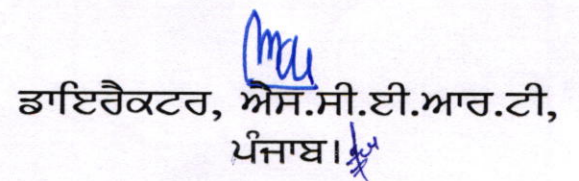 ਡਾਇਰੈਕਟਰ, ਐਸ.ਸੀ.ਈ.ਆਰ.ਟੀ,
ਪੰਜਾਬ।